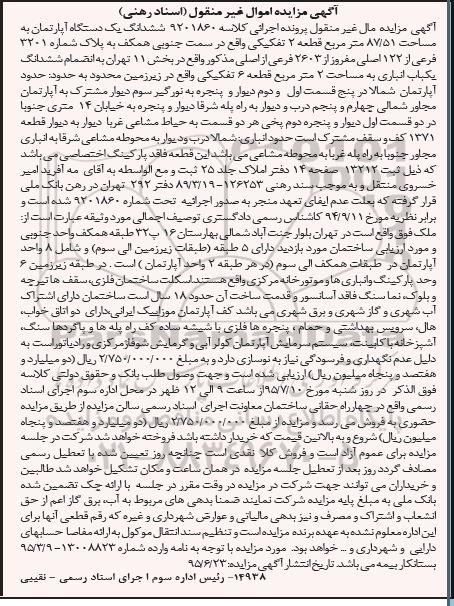 آگهی مزایده اموال غیر منقول (اسناد رهنی)
آگهی مزایده مال غیر منقول پرونده اجرائی کلاسه ۹۲۰۱۸۶۰ ششدانگ یک دستگاه آپارتمان به
مساحت ۸۷/۵۱ متر مربع قطعه ۲ تفکیکی واقع در سمت جنوبی همکف به پلاک شماره ۳۲۰۱
فرعی از ۱۲۲ اصلی مفروز از ۲۶۰۳ فرعی از اصلی مذکور واقع در بخش ۱۱ تهران به انضمام ششدانگ
یکباب انباری به مساحت ۲ متر مربع قطعه ۶ تفکیکی واقع در زیرزمین محدود به حدود: حدود
آپارتمان شمالا در پنج قسمت اول و دوم دیوار و پنجره به نورگیر سوم دیوار مشترک به آپارتمان
مجاور شمالی چهارم و پنجم درب و دیوار به راه پله شرقا دیوار و پنجره به خیابان ۱۴ متری جنوبا
در دو قسمت اول دیوار و پنجره دوم پخی هر دو قسمت به حیاط مشاعی غربا دیوار به دیوار قطعه
۱۳۷۱ کف و سقف مشترک است حدود انباری: شمالا درب و دیوار به محوطه مشاعی شرقا به انباری
مجاور جنوبا به راه پله غربا به محوطه مشاعی می باشد این قطعه فاقد پارکینگ اختصاصی می باشد
که ذیل ثبت ۱۳۲۱۲ صفحه ۱۴ دفتر املاک جلد ۲۵ ثبت و مع الواسطه به آقای مه آفرید امیر
خسروی منتقل و به موجب سند رهنی ۱۲۶۲۵۳-۸۹/۳/۱۹ دفتر ۲۹۲ تهران در رهن بانک ملی
قرار گرفته که بعلت عدم ایفای تعهد منجر به صدور اجرائیه تحت شماره ۹۲۰۱۸۶۰ شده است و
برابر نظریه مورخ ۹۴/۹/۱۱ کاشناس رسمی دادگستری توصیف اجمالی مورد وثیقه عبارت است از:
ملک فوق واقع است در تهران بلوار جنت آباد شمالی بهارستان ۱۶ پ ۳۲ طبقه همکف واحد جنوبی
و مورد ارزیابی ساختمان مورد بازدید دارای ۵ طبقه (طبقات زیرزمین الی سوم) و شامل ۸ واحد
آپارتمان در طبقات همکف الی سوم (در هر طبقه ۲ واحد آپارتمان) است. در طبقه زیرزمین ۶
وحد پارکینگ و انباری ها و موتورخانه مرکزی واقع هستند. اسکلت ساختمان فلزی، سقف ها تیرچه
و بلوک، نما سنگ فاقد آسانسور و قدمت ساخت آن حدود ۱۸ سال است ساختمان دارای اشتراک
آب شهری و گاز شهری و برق شهری می باشد کف آپارتمان موزاییک ایرانی، دارای دو اتاق خواب،
هال، سرویس بهداشتی و حمام، پنجره ها فلزی با شیشه ساده کف راه پله ها و پاگردها سنگ،
آشپزخانه با کابینت، سیستم سرمایش آپارتمان کولر آبی و گرمایش شوفاژ مرکزی و رادیاتور است به
دلیل عدم نگهداری و فرسودگی نیاز به نوسازی دارد و به مبلغ ۲/۷۵۰/۰۰۰/۰۰۰ ریال (دو میلیارد و
هفتصد و پنجاه میلیون ریال) ارزیابی شده است و جهت وصول طلب بانک و حقوق دولتی کلاسه
فوق الذکر در روز شنبه مورخ ۹۵/۷/۱۰ از ساعت ۹ الی ۱۲ ظهر در محل اداره سوم اجرای اسناد
رسمی واقع در چهارراه حقانی ساختمان معاونت اجرای اسناد رسمی سالن مزایده از طریق مزایده
حضوری به فروش می رسد و مزایده از مبلغ ۲/۷۵۰/۰۰۰/۰۰۰ ریال (دو میلیارد و هفتصد و پنجاه
میلیون ریال) شروع و به بالاترین قیمت که خریدار داشته باشد فروخته خواهد شد شرکت در جلسه
مزایده برای عموم آزاد است و فروش کلا نقدی است چنانچه روز تعیین شده با تعطیل رسمی
مصادف گردد روز بعد از تعطیل جلسه مزایده در همان ساعت و مکان تشکیل خواهد شد طالبین
و خریداران می توانند جهت شرکت در مزایده در وقت مقرر در جلسه با ارائه چک تضمین شده
بانک ملی به مبلغ پایه مزایده شرکت نمایند ضمنا بدهی های مربوط به آب، برق گاز اعم از حق
انشعاب و اشتراک و مصرف و نیز بدهی مالیاتی و عوارض شهرداری و غیره که رقم قطعی آنها برای
این اداره معلوم نشده به عهده برنده مزایده است و تنظیم سند انتقال موکول به ارائه مفاصا حسابهای
دارایی و شهرداری و ... خواهد بود. مورد مزایده با توجه به نامه وارده شماره ۱۳۰۰۸۸۲۳-۹۵/۳/۹
بستانکار بیمه می باشد. تاریخ انتشار آگهی مزایده: ۹۵/۶/۲۳
۱۴۹۳۸- رئیس اداره سوم اجرای اسناد رسمی - نقیبی